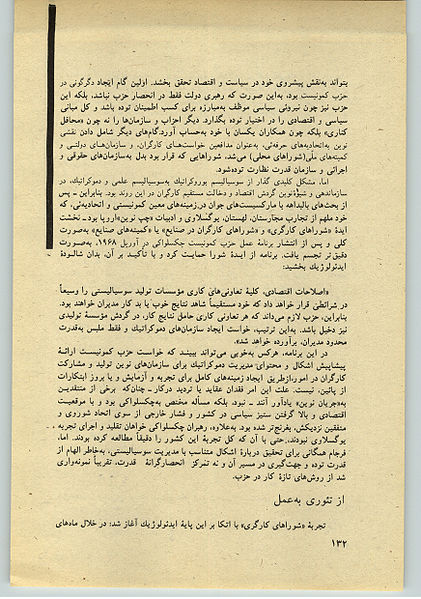 بتواند به‌نقش پیشروی خود در سیاست و اقتصاد تحقق بخشد. اولین گام ایجاد دگرگونی در
حزب کمونیست بود، به‌این صورت که رهبری دولت فقط در انحصار حزب نباشد، بلکه این
حزب نیز چون نیروئی سیاسی موظف به‌مبارزه برای کسب اطمینان توده باشد و کل مبانی
سیاسی و اقتصادی را در اختیار توده بگذارد. دیگر احزاب و سازمان‌ها را نه چون «محافل
کناری» بلکه چون همکاران یکسان با خود به‌حساب آورد. گام‌های دیگر شامل دادن نقشی
نوین به‌اتحادیه‌های حرفه‌ئی، به‌عنوان مدافعین خواست‌های کارگران، و سازمان‌های دولتی و
کمیته‌های ملی (شوراهای محلی) می‌شد، شوراهایی که قرار بود بدل به‌سازمان‌های حقوقی و
اجرائی و سازمان قدرت نظارت توده‌شود.
اما، مشکل کلیدی گذار از سوسیالیسم بوروکراتیک به‌سوسیالیسم علمی و دموکراتیک، در
سازماندهی و شیوۀ نوین گردش اقتصاد و دخالت مستقیم کارگران در این روند بود. بنابراین – پس
از بحث‌های بالیداهه با مارکسیست‌های جوان در زمینه‌های معین کمونیستی و اتحادیه‌ئی، که
خود ملهم از تجارب مجارستان، لهستان، یوگسلاوی و ادبیات «چپ نوین» اروپا بود – نخست
ایدۀ «شوراهای کارگری» و «شوراهای کارگران در صنایع» یا «کمیته‌های صنایع» به‌صورت
کلی و پس از انتشار برنامۀ عمل حزب کمونیست چکسلواکی در آوریل ۱۹۶۸، به‌صورت
دقیق‌تر تجسم یافت. برنامه از ایدۀ شورا حمایت کرد و با تأکید بر آن، بدان شالودۀ
ایدئولوژیک بخشید:
«اصلاحات اقتصادی، کلیۀ تعاونی‌های کاری مؤسسات تولید سوسیالیستی را وسیعاً
در شرائطی قرار خواهد داد که خود مستقیماً شاهد نتایج خوب یا بد کار مدیران خواهند بود.
بنابراین، حزب لازم می‌داند که هر تعاونی کاری حامل نتایج کار، در گردش مؤسسۀ تولیدی
نیز دخیل باشد. به‌این ترتیب، خواست ایجاد سازمان‌های دموکراتیک و فقط ملبس به‌قدرت
محدود مدیران، برآورده خواهد شد».
در این برنامه، هرکس به‌خوبی می‌تواند ببیند که خواست حزب کمونیست ارائۀ
پیشاپیش اشکال و محتوای مدیریت دموکراتیک برای سازمان‌های نوین تولید و مشارکت
کارگران در امور، از طریق ایجاد زمینه‌های کامل برای تجربه و آزمایش و یا بروز ابتکارات
از پائین، نیست. علت این امر فقدان عقاید یا تردید درکار – چنان‌که برخی از منتقدین
«به‌جریان نوین» یادآور آنند – نبود، بلکه مسأله مختص به‌چکسلواکی بود و با موقعیت
اقتصادی و بالا گرفتن ستیز سیاسی در کشور و فشار خارجی از سوی اتحاد شوروی و
متفقین نزدیکش، بغرنج‌تر شده بود. به‌علاوه، رهبران چکسلواکی خواهان تقلید و اجرای تجربه
یوگسلاوی نبودند، حتی با آن که کل تجربۀ این کشور را دقیقاً مطالعه کرده بودند. اما،
فرجام همگانی برای تحقیق دربارۀ اشکال متناسب با مدیریت سوسیالیستی، به‌خاطر الهام از
قدرت توده و جهت‌گیری در مسیر آن و نه تمرکز انحصارگرانۀ قدرت، تقریباً نمونه‌واری
شد از روش‌های تازۀ کار در حزب.
از تئوری به‌عمل
تجربۀ «شوراهای کارگری» با اتکا بر این پایۀ ایدئولوژیک آغاز شد: در خلال ماه‌های
۱۳۲